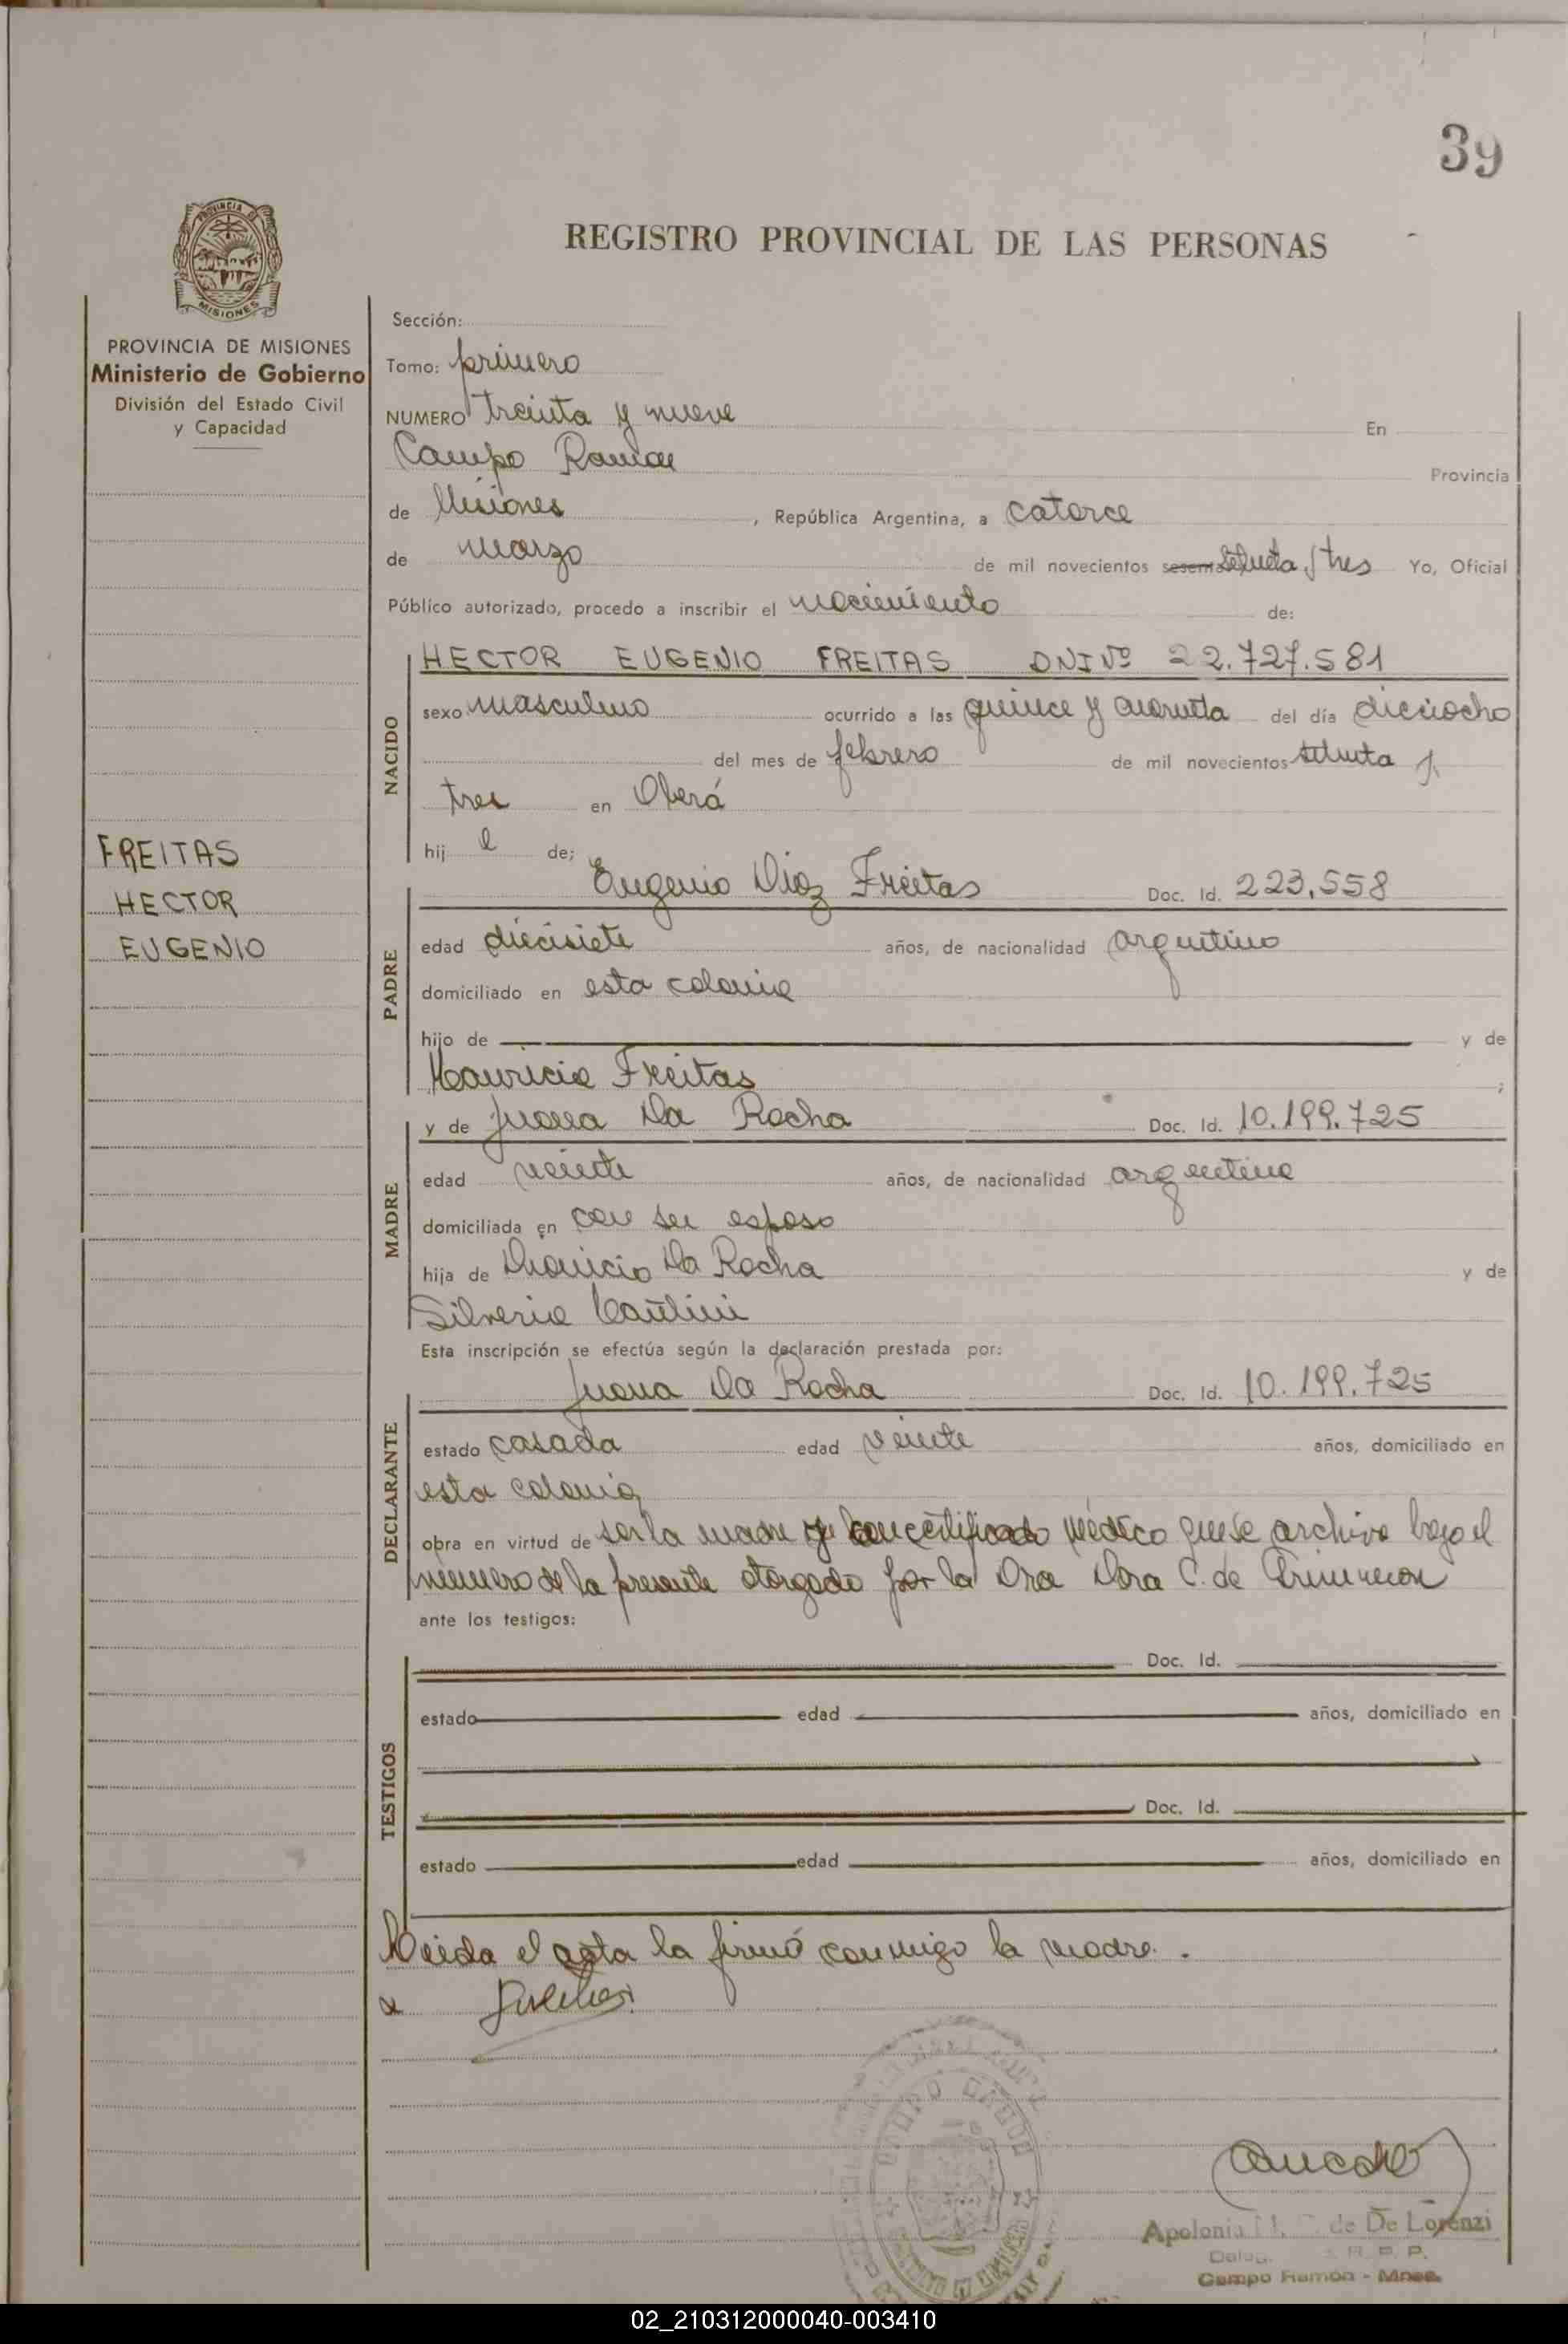 39
REGISTRO PROVINCIAL DE LAS PERSONAS
PROVINCIA DE MISIONES
Ministerio de Gobierno
División del Estado Civil
y Capacidad
FREITAS
HECTOR
EUGENIO
Sección:
Tomo: primero
NUMERO treinta y nueve En
Campo Ramon Provincia
de Misiones, República Argentina, a catorce
de marzo de mil novecientos sesenta setenta y tres Yo, Oficial
Público autorizado, procedo a inscribir el nacimiento de:
NACIDO
HECTOR EUGENIO FREITAS DNI Nº 22.727.581
sexo masculino ocurrido a las quince y cuarenta del día dieciocho
del mes de febrero de mil novecientos setenta y
tres en Oberá
hij o de;
PADRE
Eugenio Diaz Freitas Doc. Id. 223,558
edad diecisiete años, de nacionalidad argentino
domiciliado en esta colonia
hijo de y de
Mauricia Freitas ;
MADRE
y de Juana Da Rocha Doc. Id. 10.199.725
edad veinte años, de nacionalidad argentina
domiciliada en con su esposo
hija de Dionicio Da Rocha y de
Silveria
Esta inscripción se efectúa según la declaración prestada por:
DECLARANTE
Juana Da Rocha Doc. Id. 10.199.725
estado casada edad veinte años, domiciliado en
esta colonia
obra en virtud de ser la madre y con certificado médico que se archiva bajo el
número de la presente otorgado por la Dra Dora C. de
ante los testigos:
TESTIGOS
Doc. Id.
estado edad años, domiciliado en
Doc. Id.
estado edad años, domiciliado en
Leida el acta la firmó conmigo la madre.
Apolonia M. de De Lorenzi
R. P. P.
Campo Ramón - Mnes.
02_210312000040-003410